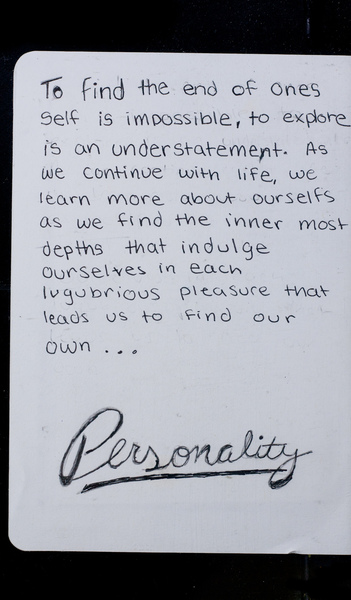 To find the end of ones
self is impossible, to explore
is an understatement. As
we continue with life, we
learn more about ourselfs
as we find the inner most
depths that indulge
ourselves in each
lugubrious pleasure that
leads us to find our
own ...
Personality